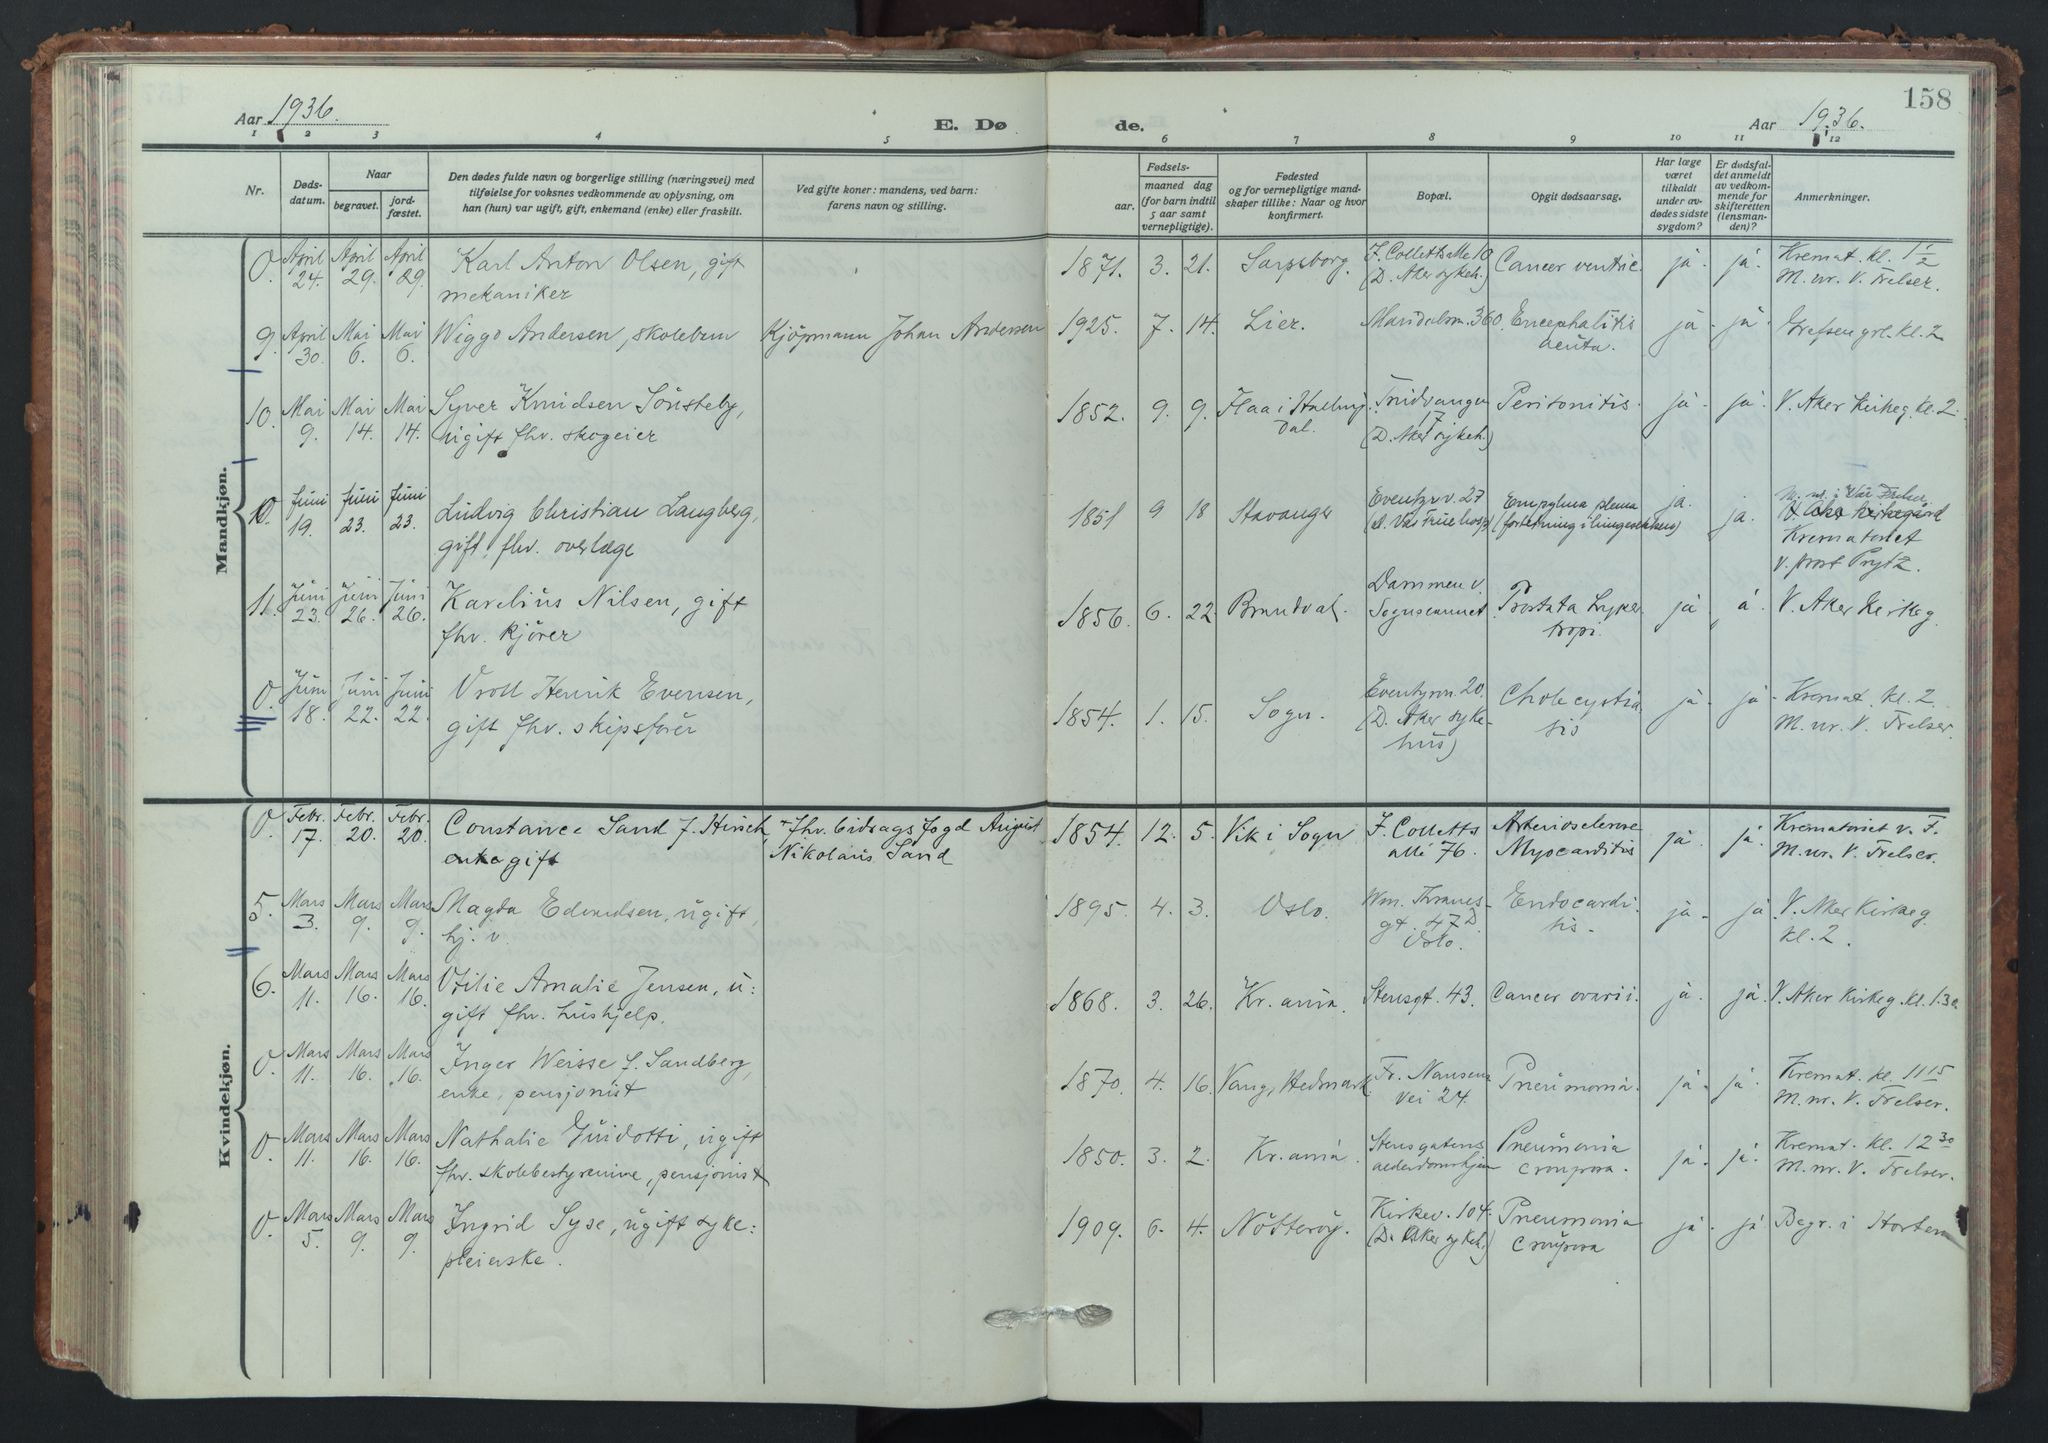 158
Aar 1936. E. Dø de. Aar 1936.
1 2 3 4 5 6 7 8 9 10 11 12
Nr.
Døds-
datum.
Naar
begravet.
jord-
fæstet.
Den dødes fulde navn og borgerlige stilling (næringsvei) med
tilføielse for voksnes vedkommende av oplysning, om
han (hun) var ugift, gift, enkemand (enke) eller fraskilt.
Ved gifte koner: mandens, ved barn:
farens navn og stilling.
Fødsels-
aar.
maaned dag
(for barn indtil
5 aar samt
vernepligtige).
Fødested
og for vernepligtige mand-
skaper tillike: Naar og hvor
konfirmert.
Bopæl.
Opgit dødsaarsag.
Har læge
været
tilkaldt
under av-
dødes sidste
sygdom?
Er dødsfal-
det anmeldt
av vedkom-
mende for
skifteretten
(lensman-
den)?
Anmerkninger.
Mandkjøn.
0. April 24. April 29. April 29. Karl Anton Olsen, gift
mekaniker
1871. 3. 21. Sarpsborg. F. Colletts alle 10
(D. Aker sykeh.) Cancer ventric. ja ja. Kremat. kl. 1 1/2
M. nr. V. Frelser.
9. April 30. Mai 6. Mai 6. Wiggo Andersen, skolebarn Kjöpmann Johan Andersen
1925. 7. 14. Lier. Maridalsv. 360. Encephalitis
acuta. ja. ja. Grefsen grl. kl. 2
10. Mai 9. Mai 14. Mai 14. Syver Knudsen Sönsteby,
ugift fhv. skogeier
1852. 9. 9. Flaa i Halling
dal.
17
(D. Aker sykeh.) Peritonitis. ja. ja. V. Aker Kirkeg. kl. 2.
0. Juni 19. Juni 23. Juni 23. Ludvig Christian Langberg,
gift, fhv. overlæge
1851 9 18 Stavanger Eventyrv. 27
Empyema plena
ja. ja. M. nr. i Vår Frelser.
Krematoriet
v. prost Prytz.
11. Juni 23. Juni 26. Juni 26. Karelius Nilsen, gift
fhv. kjörer
1856. 6. 22. Brandval. Dammen v.
Sognsvannet Prostata hyper
tropi. ja a. V. Aker Kirkeg.
0. Juni 18. Juni 22. Juni 22. Henrik Evensen,
gift fhv. skipsförer
1854. 1. 15. Sogn. Eventyrv. 20.
(D. Aker syke-
hus) Cholecysti
tis ja ja. Kremat. kl. 2.
M. nr. V. Frelser.
Kvindekjøn.
0. Febr. 17. Febr. 20. Febr. 20. Constance Sand f. Hirsch,
enke gift fhv. bidragsfogd August
Nikolaus Sand
1854. 12. 5. Vik i Sogn F. Colletts
alle 76. Arteriosclerose
Myocarditis ja. ja. Krematoriet v. F.
M. nr. V. Frelser.
5. Mars 3. Mars 9. Mars 9. Magda Edvardsen, ugift,
hj. v.
1895. 4. 3. Oslo. Wm. Thranes-
gt. 47 D.
Oslo. Endocardi-
tis. ja. ja V. Aker Kirkeg
kl. 2.
6. Mars 11. Mars 16. Mars 16. Otilie Amalie Jensen, u-
gift fhv. hushjelp.
1868. 3. 26. Kr.ania. Stensgt. 43. Cancer ovarii. ja. ja. V. Aker Kirkeg. kl. 1.30
0. Mars 11. Mars 16. Mars 16. Inger Weisse f. Sandberg,
enke, pensjonist
1870. 4. 16. Vang, Hedmark Fr. Nansens
vei 24. Pneumonia. ja. ja. Kremat. kl. 11 15
M. nr. V. Frelser.
0. Mars 11. Mars 16. Mars 16. Nathalie Guidotti, ugift
fhv. skolebestyrerinne, pensjonist
1850. 3. 2. Kr.ania. Stensgatens
aldershjem Pneumonia
crouposa. ja. ja. Kremat. kl. 12 30
M. nr. V. Frelser.
0. Mars 5. Mars 9. Mars 9. Ingrid Syse, ugift syke-
pleierske.
1909. 6. 4. Nötteröy. Kirkev. 104.
(D. Aker sykeh.) Pneumonia
crouposa ja. ja. Begr. i Horten